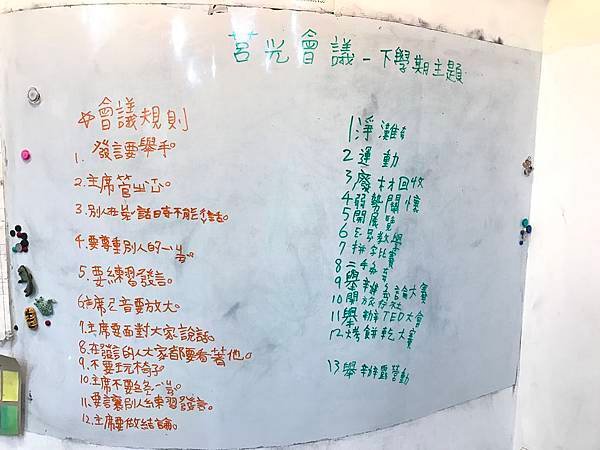 莒光會議-下學期主題
會議規則
1. 發言要舉手。
2.主席管出
3.別人在說話時不能
4.要尊重別人的
5.要練習發言。
6. 音要放大。
7.主席要面對大家說話。
8.在發言的人大家都要看著他。
9.不要玩椅子。
10.主席不要
11.要讓別人練習發言。
12.主席要做結論。
1淨灘
2運動
3廢材回收
4弱勢關懷
5開展覽
6 教學
7拼字比賽
8二手
9舉辦辯論大賽
10開旅行社
11舉辦TED大會
12烤餅乾大賽
13舉辦露營動